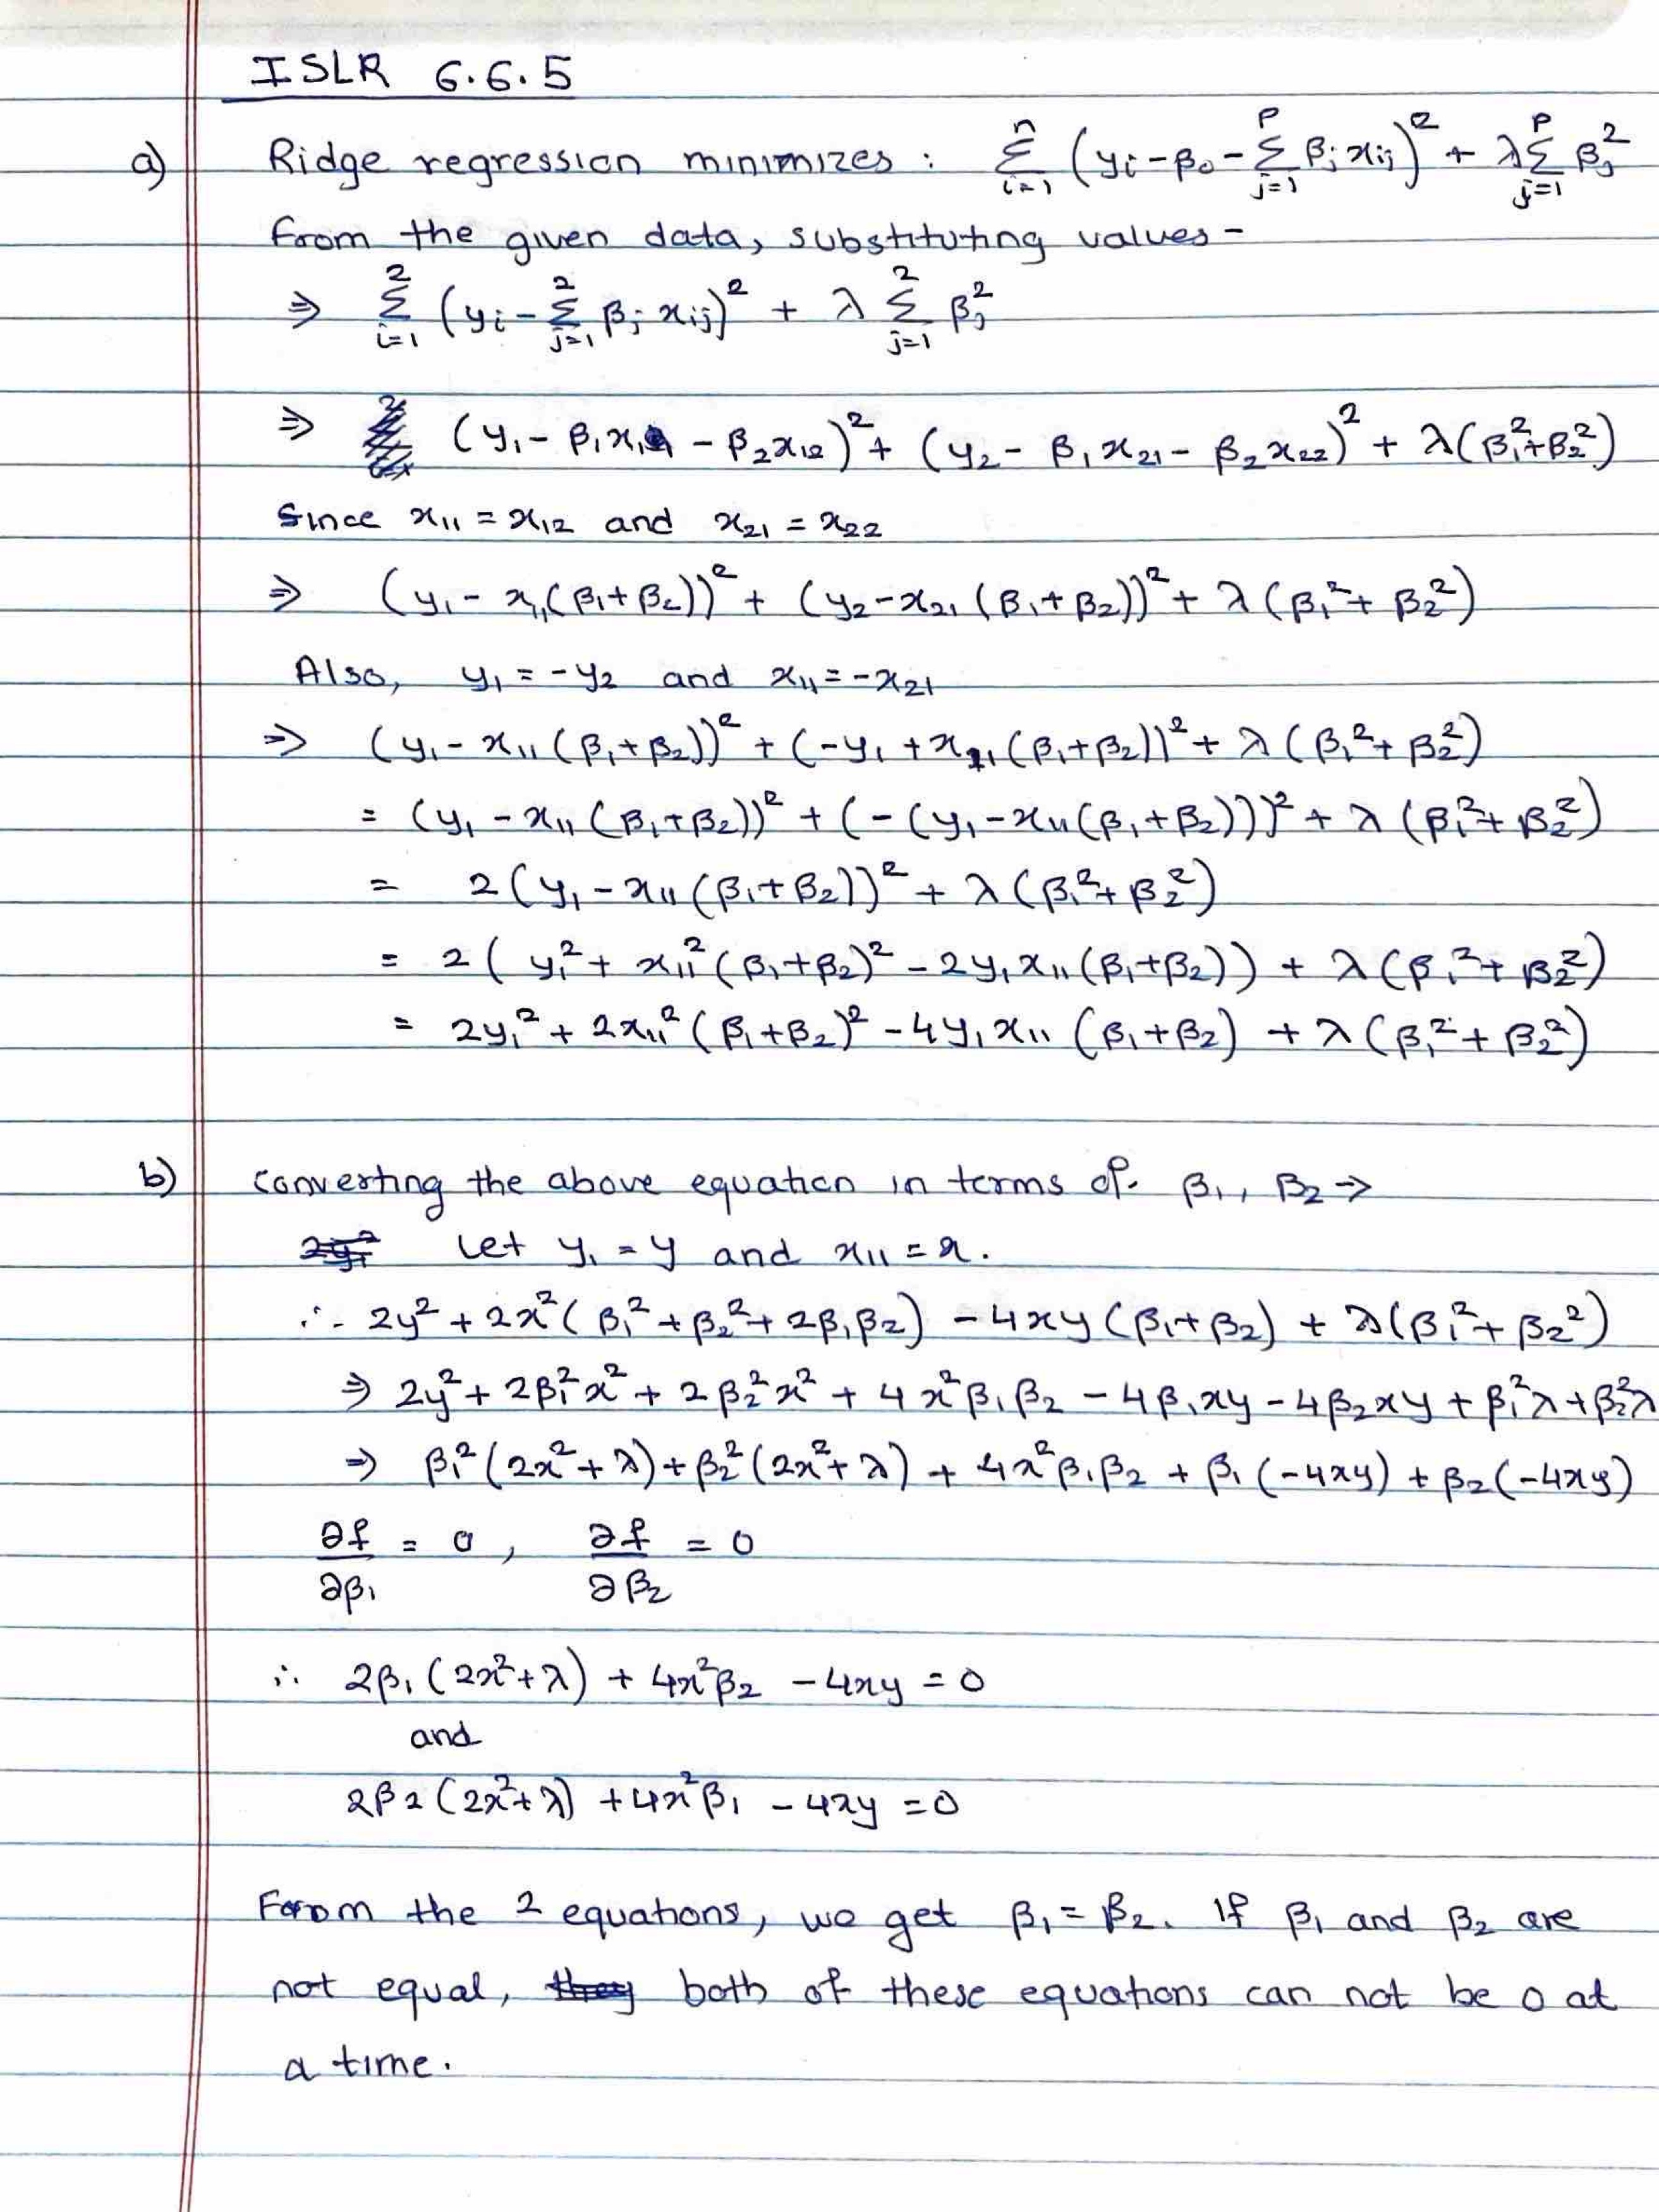 ISLR 6.6.5
a) Ridge regression minimizes : Σ_{i=1}^{n} (yᵢ - β₀ - Σ_{j=1}^{p} βⱼ xᵢⱼ)² + λ Σ_{j=1}^{p} βⱼ²
From the given data, substituting values -
⇒ Σ_{i=1}^{2} (yᵢ - Σ_{j=1}^{2} βⱼ xᵢⱼ)² + λ Σ_{j=1}^{2} βⱼ²
⇒ (y₁ - β₁x₁₁ - β₂x₁₂)² + (y₂ - β₁x₂₁ - β₂x₂₂)² + λ(β₁² + β₂²)
Since x₁₁ = x₁₂ and x₂₁ = x₂₂
⇒ (y₁ - x₁₁(β₁ + β₂))² + (y₂ - x₂₁(β₁ + β₂))² + λ(β₁² + β₂²)
Also, y₁ = -y₂ and x₁₁ = -x₂₁
⇒ (y₁ - x₁₁(β₁ + β₂))² + (-y₁ + x₁₁(β₁ + β₂))² + λ(β₁² + β₂²)
= (y₁ - x₁₁(β₁ + β₂))² + (-(y₁ - x₁₁(β₁ + β₂)))² + λ(β₁² + β₂²)
= 2(y₁ - x₁₁(β₁ + β₂))² + λ(β₁² + β₂²)
= 2(y₁² + x₁₁²(β₁ + β₂)² - 2y₁x₁₁(β₁ + β₂)) + λ(β₁² + β₂²)
= 2y₁² + 2x₁₁²(β₁ + β₂)² - 4y₁x₁₁(β₁ + β₂) + λ(β₁² + β₂²)
b) Converting the above equation in terms of β₁, β₂ →
Let y₁ = y and x₁₁ = x.
∴ 2y² + 2x²(β₁² + β₂² + 2β₁β₂) - 4xy(β₁ + β₂) + λ(β₁² + β₂²)
⇒ 2y² + 2β₁²x² + 2β₂²x² + 4x²β₁β₂ - 4β₁xy - 4β₂xy + β₁²λ + β₂²λ
⇒ β₁²(2x² + λ) + β₂²(2x² + λ) + 4x²β₁β₂ + β₁(-4xy) + β₂(-4xy)
∂f/∂β₁ = 0 , ∂f/∂β₂ = 0
∴ 2β₁(2x² + λ) + 4x²β₂ - 4xy = 0
and
2β₂(2x² + λ) + 4x²β₁ - 4xy = 0
From the 2 equations, we get β₁ = β₂. If β₁ and β₂ are
not equal, both of these equations can not be 0 at
a time.